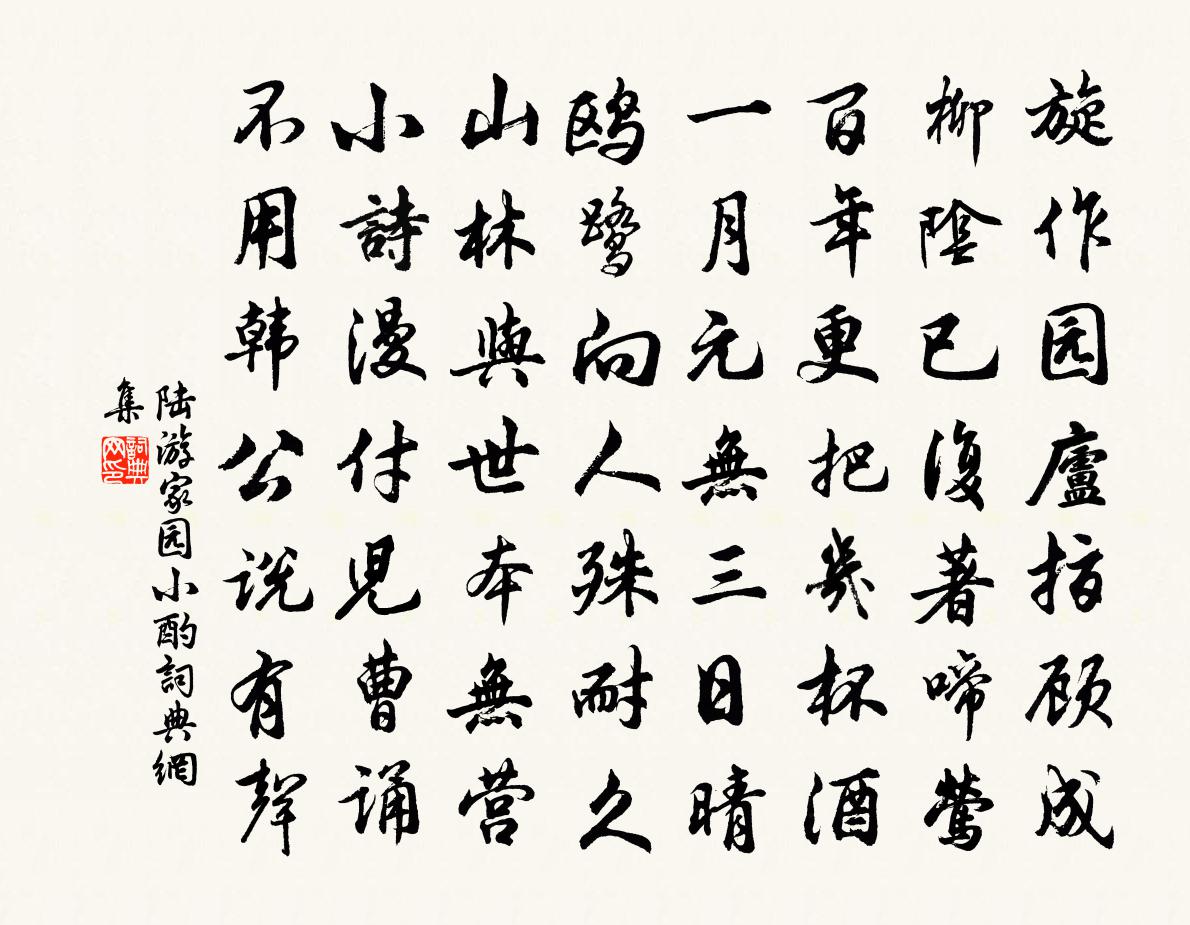 旋作园廬指顾成
柳陰已復著啼鶯
百年更把幾杯酒
一月元無三日晴
鸥鹭向人殊耐久
山林與世本無营
小詩漫付児曹诵
不用韩公说有聲
陆游家园小酌詞典網
集
詞典网印